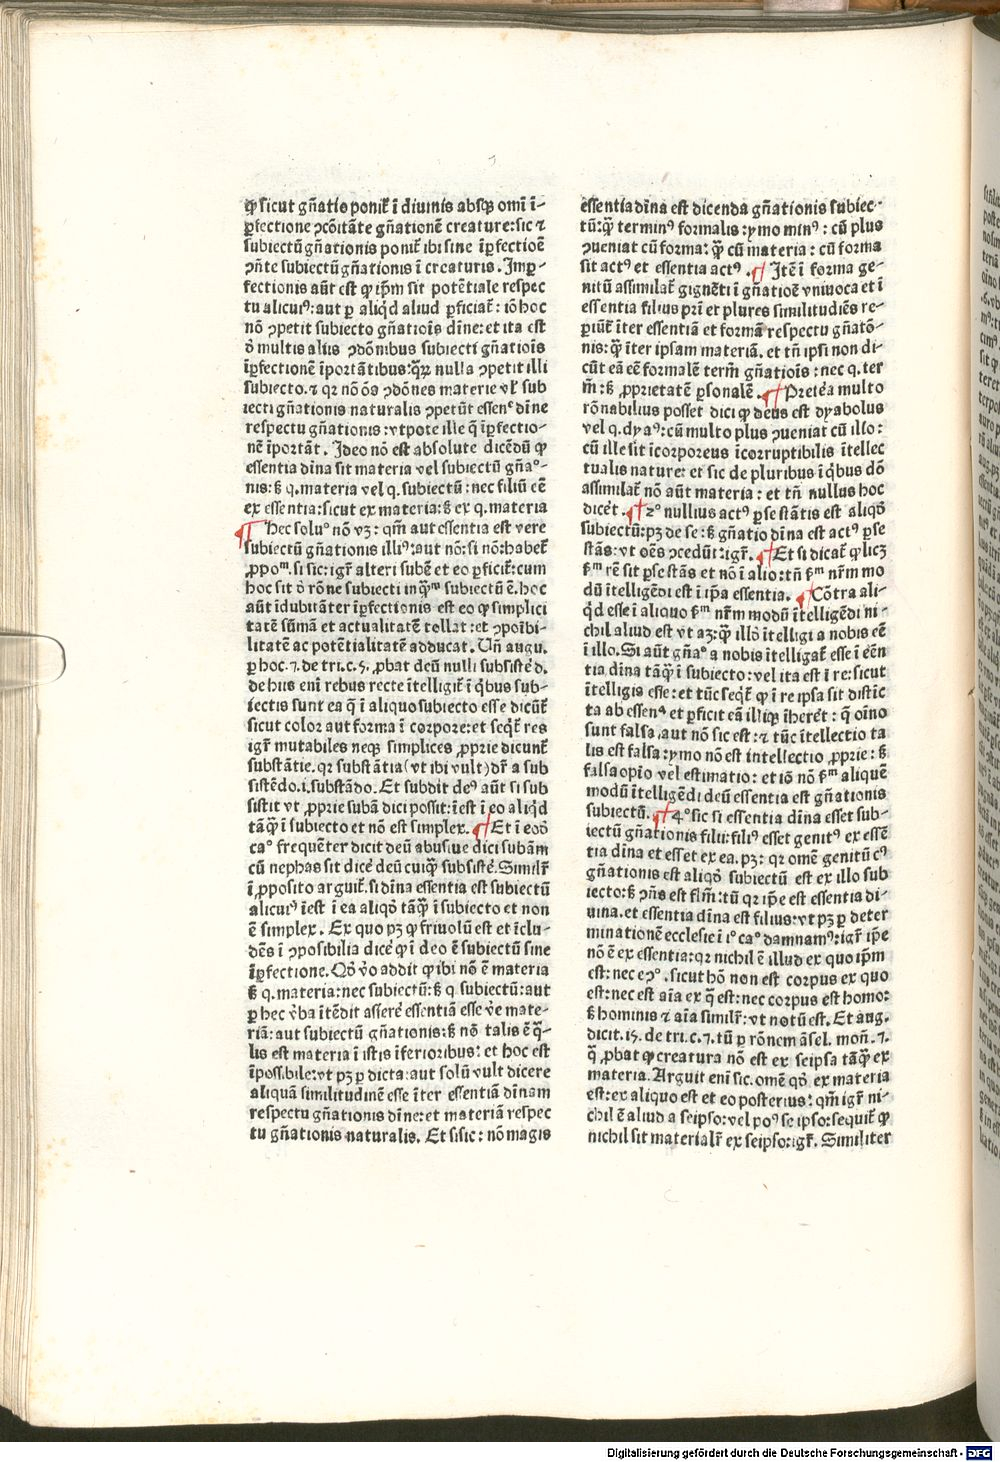 ꝙ sicut gñatio ponit᷑ ī diuinis absqꝫ omī ī-
ꝑfectione ꝯcōitāte gñationē creature: sic ⁊
subiectū gñationis ponit᷑ ibi sine īꝑfectiōe
ꝯñte subiectū gñationis ī creaturis. Imꝑ-
fectionis aūt est ꝙ ip̄m sit potētiale respec
tu alicuiꝰ: aut ꝑ aliq̇d aliud ꝑficiat᷑: iō hoc
nō ꝯpetit subiecto gñatiōis dīne: et ita est
ō multis aliis ꝯdōnibus subiecti gñatiōis
īꝑfectionē īportātibus: qꝝ nulla ꝯpetit illi
subiecto. ⁊ qꝛ nō ōs ꝯdōnes materie vl᷑ sub
iecti gñationis naturalis ꝯpetūt essenᵉ dīne
respectu gñationis: vtpote ille q̄ īꝑfectio-
nē īportāt. Ideo nō est absolute dicēdū ꝙ
essentia dīna sit materia vel subiectū gñaᵒ-
nis: sꝫ q. materia vel q. subiectū: nec filiū eē
ex essentia: sicut ex materia: sꝫ ex q. materia
¶ Hec soluᵒ nō vꝫ: qm̄ aut essentia est vere
subiectū gñationis illiꝰ: aut nō: si nō: habet᷑
ꝓpoᵐ. si sic: igr̄ alteri subē et eo ꝑficit᷑: cum
hoc sit ō rōne subiecti inq̄ᵐ subiectū ē. hoc
aūt īdubitāter īꝑfectionis est eo ꝙ simplici
tatē sūmā et actualitatē tollat: et ꝯpoībi-
litatē ac potētialitatē adducat. Uñ augu.
ꝑ hoc. 7. de tri. c. 5. ꝓbat deū nulli subsistē d.
de hiis enī rebus recte ītelligit᷑ ī q̇bus sub-
iectis sunt ea q̄ ī aliquo subiecto esse dicūt᷑
sicut color aut forma ī corpore: et seqt᷑ res
igr̄ mutabiles neqꝫ simplices ꝓprie dicunt᷑
substātie. qꝛ substātia (vt ibi vult) dr̄ a sub
sistēdo. i. substādo. Et subdit deꝰ aūt si sub
sistit vt ꝓprie subā dici possit: īest ī eo aliq̇d
tāꝙ̄ ī subiecto et nō est simplex. ¶ Et ī eoō
caᵒ frequēter dicit deū abusiue dici subām
cū nephas sit dicē deū cuiꝙ̄ subsistē. Similr̄
ī ꝓposito arguit᷑. si dīna essentia est subiectū
alicuiꝰ īest ī ea aliqō tāꝙ̄ ī subiecto et non
ē simplex. Ex quo pꝫ ꝙ friuolū est et īclu-
dēs ī ꝯposibilia dicē ꝙ ī deo ē subiectū sine
īꝑfectione. Qō v̄o addit ꝙ ibi nō ē materia
sꝫ q. materia: nec subiectū: sꝫ q subiectū: aut
ꝑ hec v̄ba ītēdit asserē essentiā esse v̄e mate-
riā: aut subiectū gñationis: sꝫ nō talis ē q̄-
lis est materia ī istis īferioribus: et hoc est
īpossibile: vt pꝫ ꝑ dicta: aut solū vult dicere
aliquā similitudinē esse īter essentiā dīnam
respectu gñationis dīne: et materiā respec
tu gñationis naturalis. Et si sic: nō magis
essentia dīna est dicenda gñationis subiec-
tū: ꝙ̄ terminꝰ formalis: ymo minꝰ: cū plus
ꝯueniat cū forma: ꝙ̄ cū materia: cū forma
sit actꝰ et essentia actꝰ. ¶ Itē ī forma ge-
nitū assimilat᷑ gignēti ī gñatiōe vniuoca et ī
essentia filius prī et plures similitudiēs re-
ꝑiūt᷑ īter essentiā et formā respectu gñatō-
nis: ꝙ̄ īter ipsam materiā. et tñ ipsi non di-
cūt eā eē formalē term̄ gñatiōis: nec q. ter
m̄: sꝫ ꝓprietatē ꝑsonalē. ¶ Preteā multo
rōnabilius posset dici ꝙ deus est dyabolus
vel q. dyaꝰ: cū multo plus ꝯueniat cū illo:
cū ille sit īcorporeus īcorruptibilis ītellec
tualis nature: et sic de pluribus ī q̇bus dō
assimilat᷑ nō aūt materia: et tñ nullus hoc
dicēt. ¶ 2ᵒ nullius actꝰ ꝑ se stātis est aliqō
subiectū: pꝫ de se: sꝫ gñatio dīna est actꝰ ꝑ se
stās: vt oēs ꝯcedūt: igr̄. ¶ Et si dicat᷑ ꝙ licꝫ
sᵐ rē sit ꝑ se stās et nō ī alio: tñ sᵐ nr̄m mo
dū ītelligēdi est ī ip̄a essentia. ¶ Cōtra ali-
q̇d esse ī aliquo sᵐ nr̄m modū ītelligēdi ni-
chil aliud est vt aꝫ: ꝙ̄ illō ītelligi a nobis eē
ī illo. Si aūt gñaᵒ a nobis ītelligat᷑ esse ī eēn
tia dīna tāꝙ̄ ī subiecto: vel ita est ī re: sicut
ītelligis esse: et tūc seqt᷑ ꝙ ī re ipsa sit distīc
ta ab essenᵃ et ꝑficit eā illiqꝫ īherēt: q̄ oīno
sunt falsa. aut nō sic est: ⁊ tūc ītellectio ta
lis est falsa: ymo nō est intellectio ꝓprie: sꝫ
falsa opīo vel estimatio: et iō nō sᵐ aliquē
modū ītelligēdi deū essentia est gñationis
subiectū. ¶ 4ᵒ sic si essentia dīna esset sub-
iectū gñationis filii: filiꝰ esset genitꝰ ex essē
tia dīna et esset ex ea. pꝫ: qꝛ omē genitū cꝰ
gñationis est aliqō subiectū est ex illo sub
iecto: sꝫ ꝯñs est flm̄: tū qꝛ ip̄e est essentia di-
uina. et essentia dīna est filius: vt pꝫ ꝑ deter
minationē ecclesie ī 1ᵒ caᵒ damnamꝰ: igr̄ ip̄e
nō ē ex essentia: qꝛ nichil ē illud ex quo ip̄m
est: nec eꝯᵒ. sicut hō non est corpus ex quo
est: nec est aīa ex q̄ est: nec corpus est homo:
sꝫ hominis ⁊ aīa similr̄: vt notū est. Et aug.
dicit. 15. de tri. c. 7. tū ꝑ rōnem āsel. moñ. 7.
q̄ ꝓbat ꝙ creatura nō est ex seipsa tāꝙ̄ ex
materia. Arguit enī sic. omē qō ex materia
est: ex aliquo est et eo posterius: qm̄ igr̄ ni-
chil ē aliud a seipso: vel poꝰ seipso: sequit᷑ ꝙ
nichil sit materialr̄ ex seipso: igr̄. Similiter
Digitalisierung gefördert durch die Deutsche Forschungsgemeinschaft - DFG